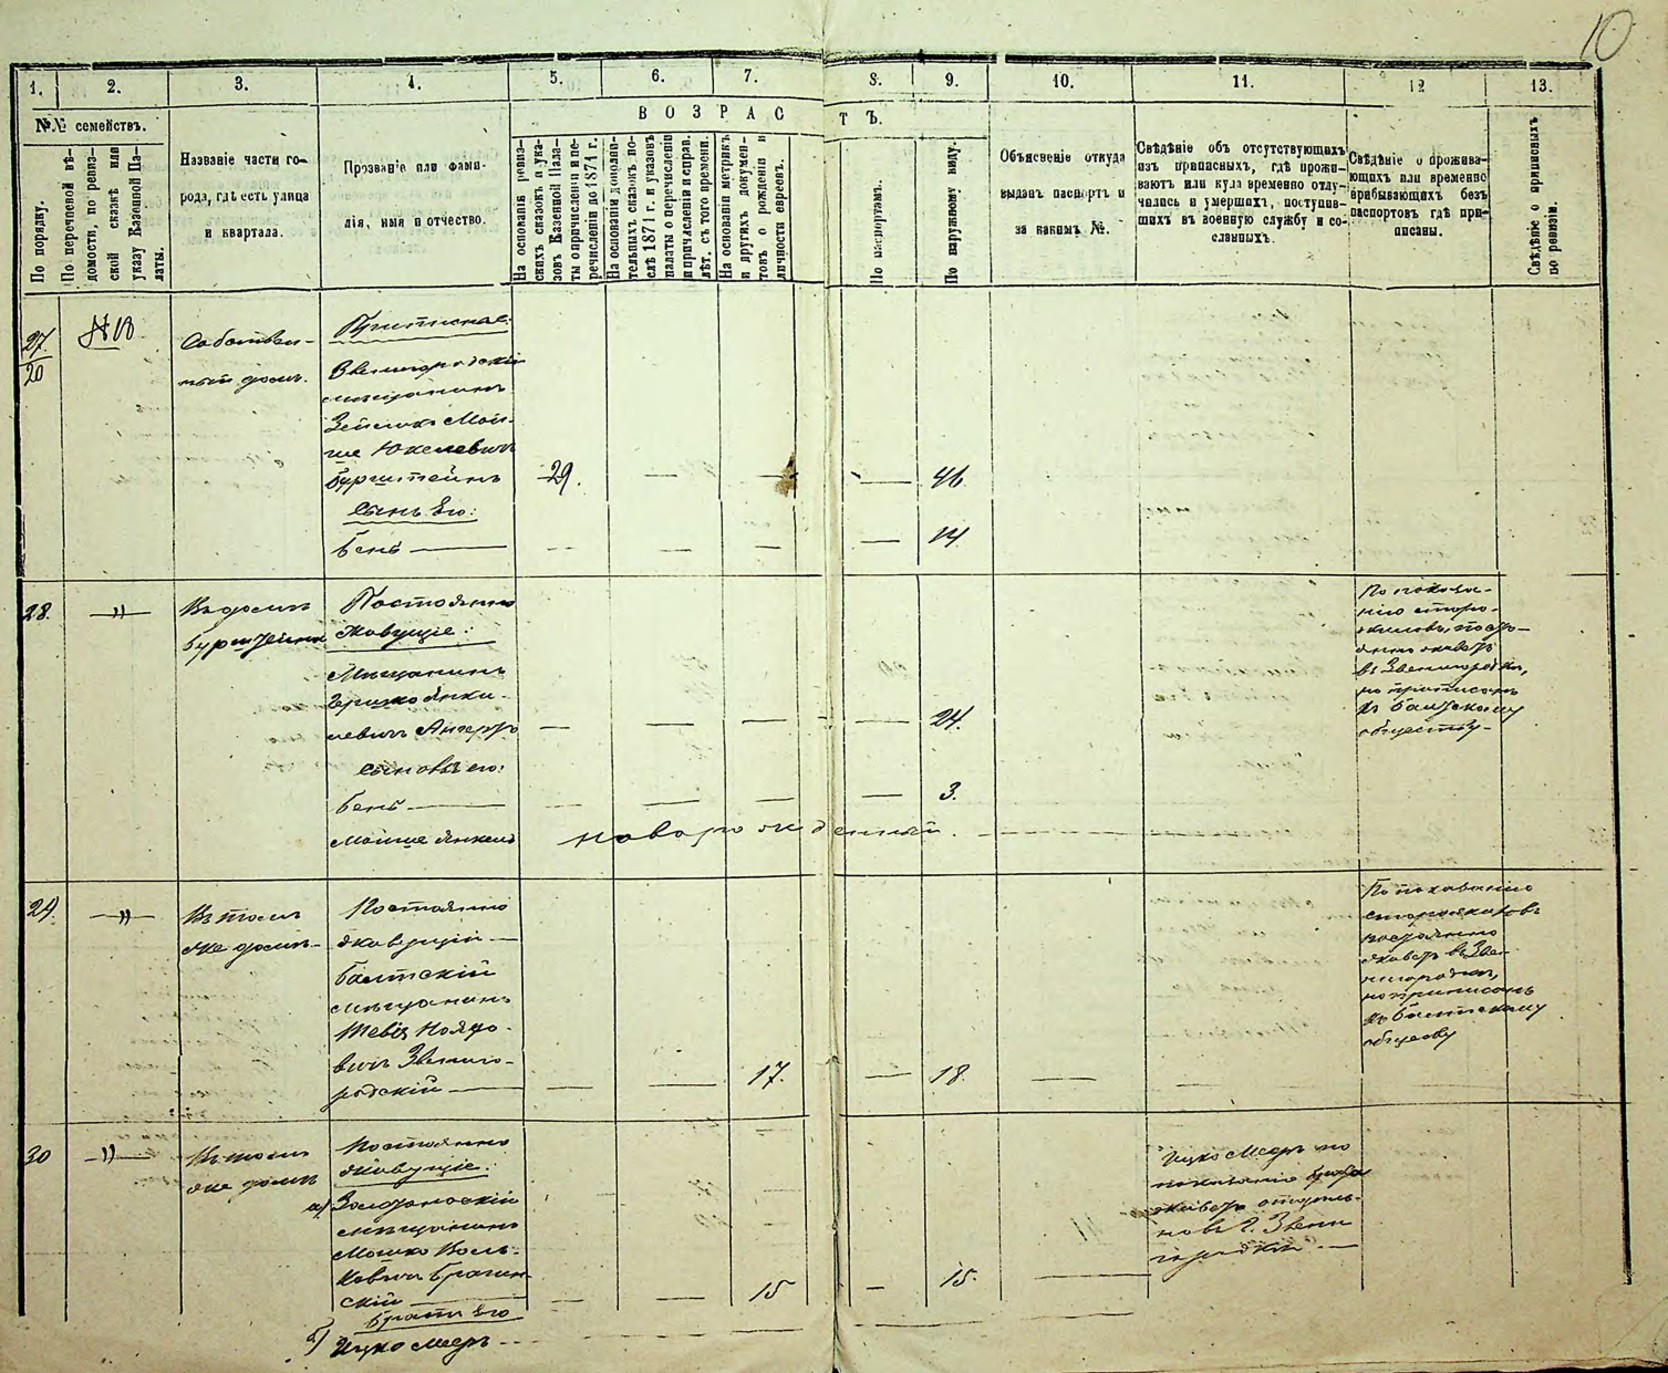 10
1. 2. 3. 4. 5. 6. 7. 8. 9. 10. 11. 12 13.
№№ семействъ.
По порядку.
По перечневой вѣ-
домости, по ревиз-
ской сказкѣ или
указу Казенной Па-
латы.
Названіе части го-
рода, гдѣ есть улица
и квартала.
Прозваніе или фами-
лія, имя и отчество.
ВОЗРАСТЪ.
На основаніи ревиз-
скихъ сказокъ и ука-
зовъ Казенной Пала-
ты о причисленіи и пе-
речисленіи до 1871 г.
На основаніи дополни-
тельныхъ сказокъ по-
слѣ 1871 г. и указовъ
палаты о перечисленіи
и причисленіи и справ.
лѣт. съ того времени.
На основаніи метрикъ
и другихъ докумен-
товъ о рожденіи и
личности евреевъ.
По паспортамъ.
По наружному виду.
Объясненіе откуда
выданъ паспортъ и
за какимъ №.
Свѣдѣніе объ отсутствующихъ
изъ приписныхъ, гдѣ прожи-
ваютъ или куда временно отлу-
чились и умершихъ, поступив-
шихъ въ военную службу и со-
сланныхъ.
Свѣдѣніе о прожива-
ющихъ или временно
прибывающихъ безъ
паспортовъ гдѣ при-
писаны.
Свѣдѣніе о приписныхъ
по ревизіи.
27
20
Собствен-
ный домъ.
Приписные:
Звенигородскій
мѣщанинъ
Зейликъ Мой-
ше Юкелевичъ
Бурштейнъ
29.
46
Сынъ его:
Бенъ
14
28.
Въ домѣ
Бурштейна
Постоянно
живущіе:
Мѣщанинъ
Гершко Янки-
левичъ
24.
Сыновья его:
Бенъ
3.
Мойше Янкель
новорожденный.
По показа-
нію старо-
жиловъ, посто-
янно живетъ
въ Звенигородкѣ,
но приписанъ
къ Балтскому
обществу
29.
Въ томъ
же домѣ
Постоянно
живущій
Балтскій
мѣщанинъ
Звениго-
родскій
17.
18.
По показанію
старожиловъ
постоянно
живетъ въ Зве-
нигородкѣ,
но приписанъ
къ Балтскому
обществу
30
Въ томъ
же домѣ
Постоянно
живущіе:
а)
мѣщанинъ
Мошко Воль-
ковичъ Брагин-
скій
15
15.
Братъ его
б) Ицко Мееръ
Ицко Мееръ по
показанію брата
живетъ отдѣль-
но въ г. Звени
городкѣ